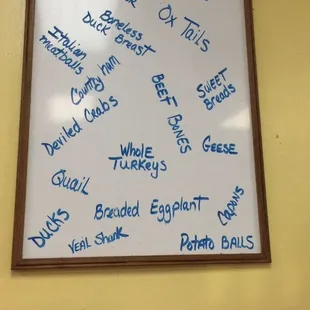 Boneless
Duck Breast
Ox Tails
Italian
Meatballs
Country Ham
Sweet
Breads
Beet Bones
Deviled Crabs
Whole
Turkeys
Geese
Quail
Capons
Breaded Eggplant
Ducks
Veal Shank
Potato Balls